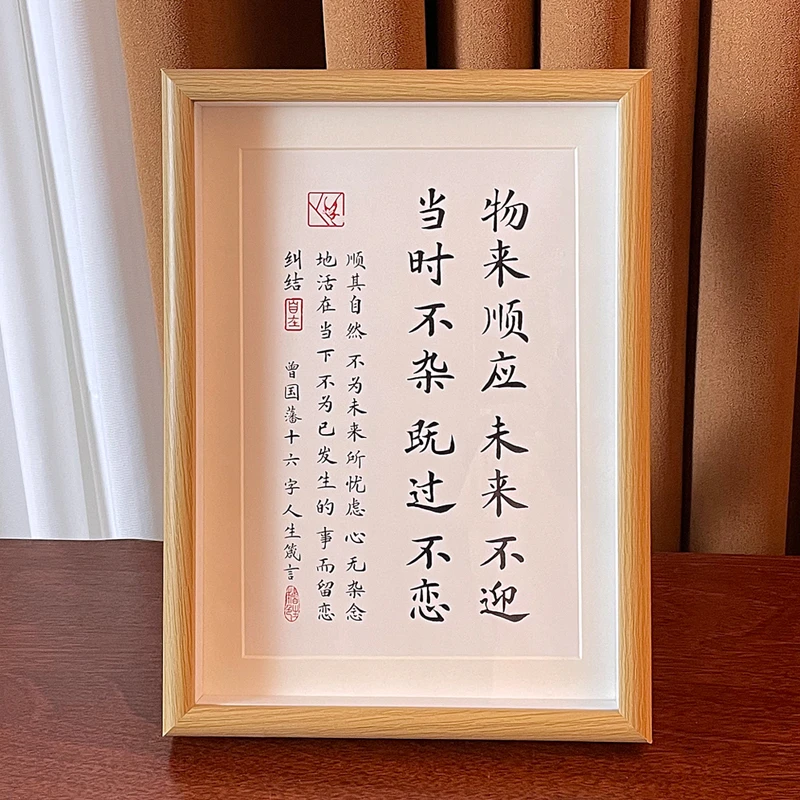 物来顺应 未来不迎
当时不杂 既过不恋
顺其自然 不为未来所忧虑 心无杂念
地活在当下 不为已发生的事而留恋
纠结 自在
曾国藩十六字人生箴言